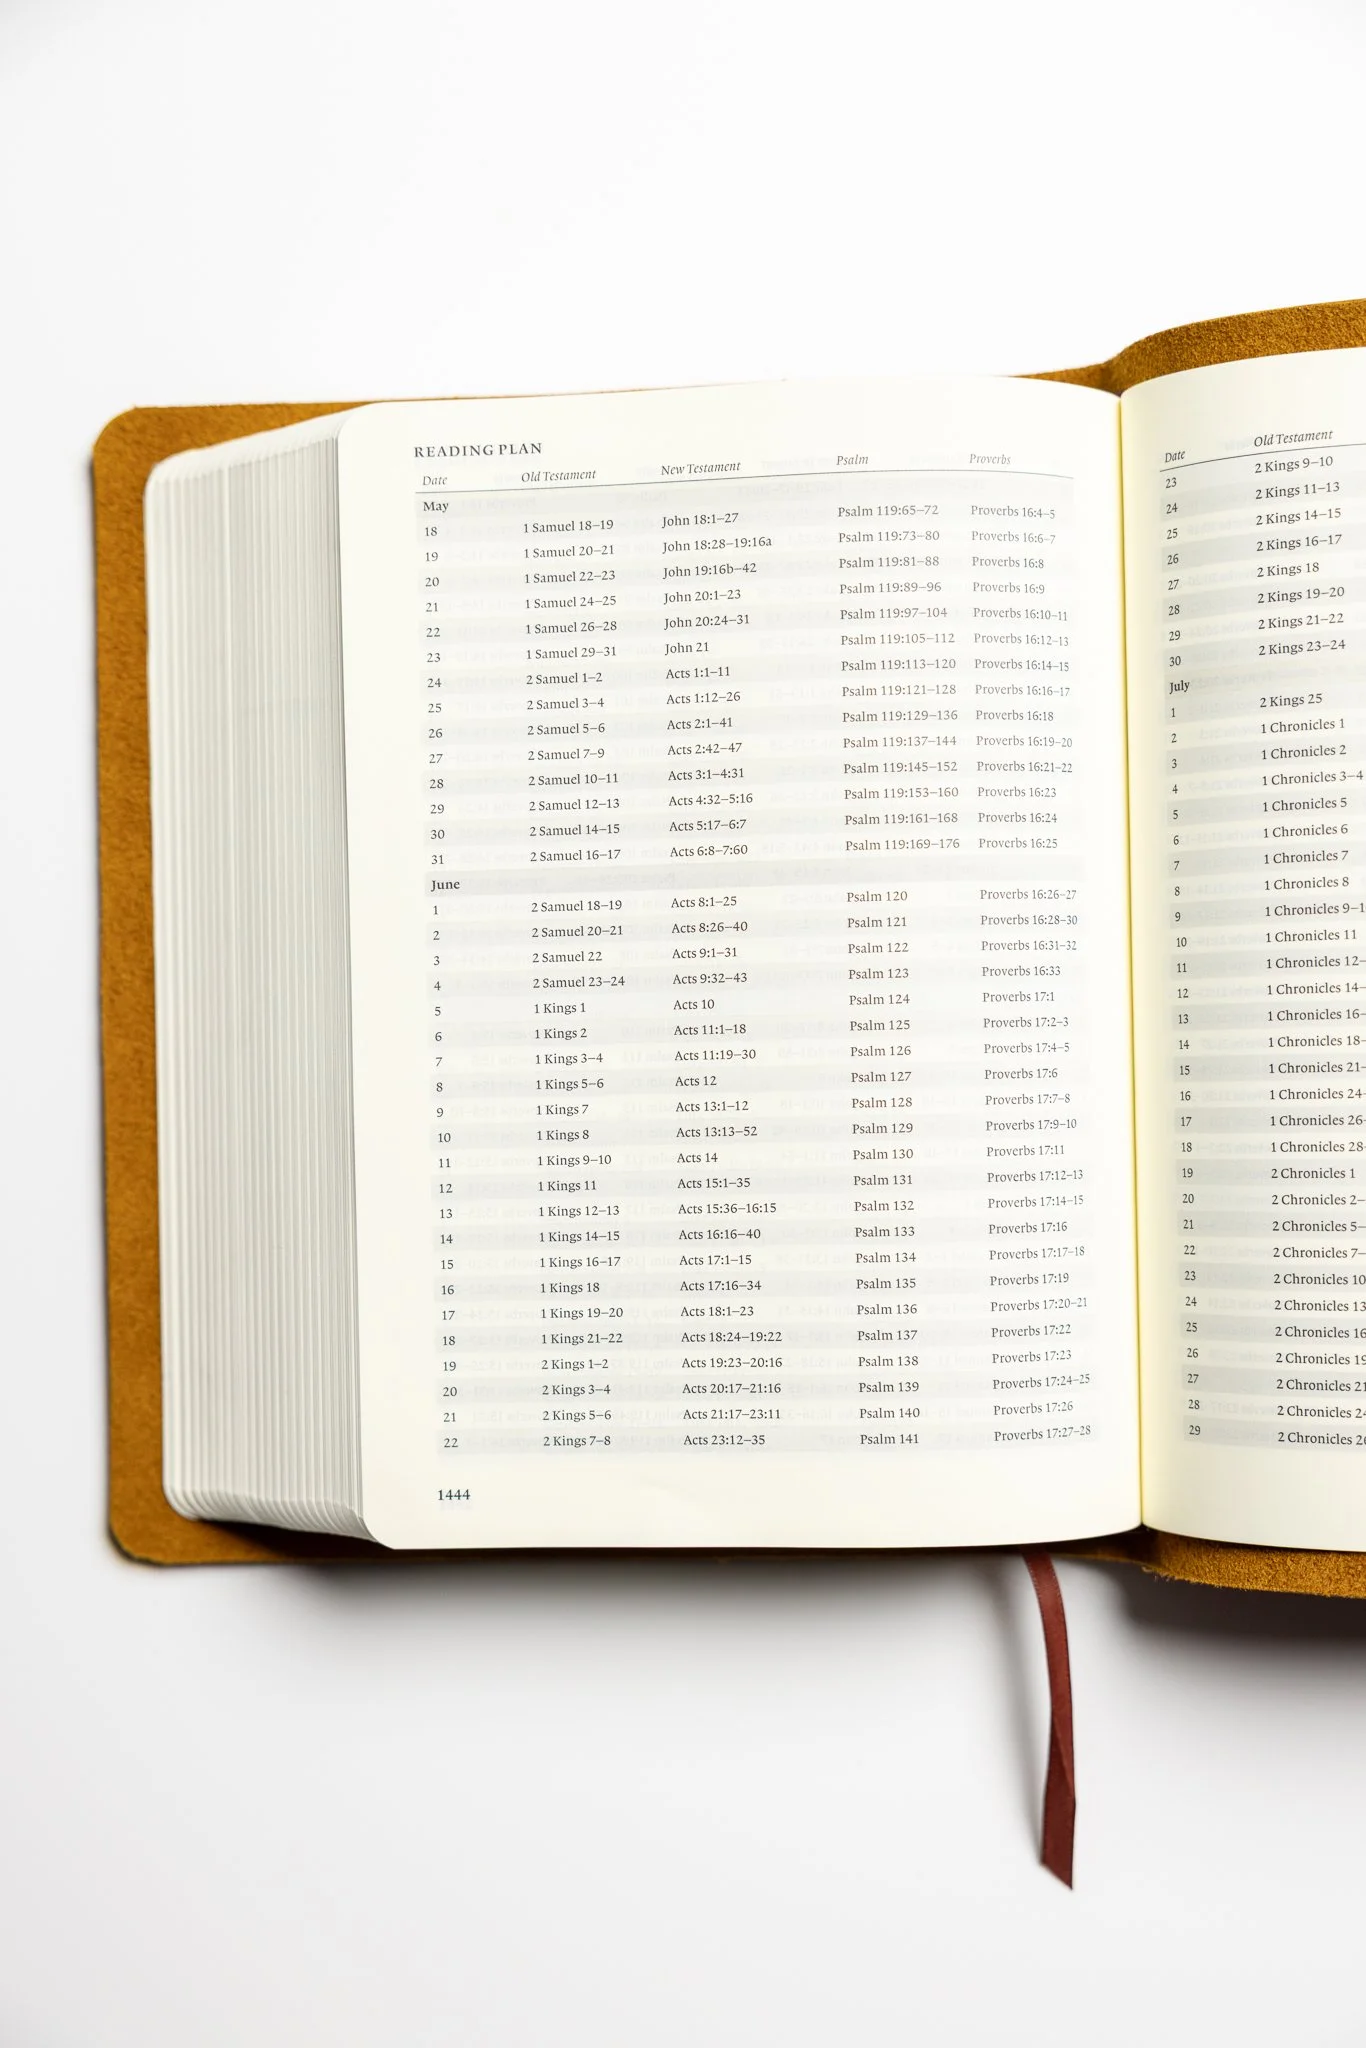 READING PLAN
Date Old Testament New Testament Psalm Proverbs
May
18 1 Samuel 18–19 John 18:1–27 Psalm 119:65–72 Proverbs 16:4–5
19 1 Samuel 20–21 John 18:28–19:16a Psalm 119:73–80 Proverbs 16:6–7
20 1 Samuel 22–23 John 19:16b–42 Psalm 119:81–88 Proverbs 16:8
21 1 Samuel 24–25 John 20:1–23 Psalm 119:89–96 Proverbs 16:9
22 1 Samuel 26–28 John 20:24–31 Psalm 119:97–104 Proverbs 16:10–11
23 1 Samuel 29–31 John 21 Psalm 119:105–112 Proverbs 16:12–13
24 2 Samuel 1–2 Acts 1:1–11 Psalm 119:113–120 Proverbs 16:14–15
25 2 Samuel 3–4 Acts 1:12–26 Psalm 119:121–128 Proverbs 16:16–17
26 2 Samuel 5–6 Acts 2:1–41 Psalm 119:129–136 Proverbs 16:18
27 2 Samuel 7–9 Acts 2:42–47 Psalm 119:137–144 Proverbs 16:19–20
28 2 Samuel 10–11 Acts 3:1–4:31 Psalm 119:145–152 Proverbs 16:21–22
29 2 Samuel 12–13 Acts 4:32–5:16 Psalm 119:153–160 Proverbs 16:23
30 2 Samuel 14–15 Acts 5:17–6:7 Psalm 119:161–168 Proverbs 16:24
31 2 Samuel 16–17 Acts 6:8–7:60 Psalm 119:169–176 Proverbs 16:25
June
1 2 Samuel 18–19 Acts 8:1–25 Psalm 120 Proverbs 16:26–27
2 2 Samuel 20–21 Acts 8:26–40 Psalm 121 Proverbs 16:28–30
3 2 Samuel 22 Acts 9:1–31 Psalm 122 Proverbs 16:31–32
4 2 Samuel 23–24 Acts 9:32–43 Psalm 123 Proverbs 16:33
5 1 Kings 1 Acts 10 Psalm 124 Proverbs 17:1
6 1 Kings 2 Acts 11:1–18 Psalm 125 Proverbs 17:2–3
7 1 Kings 3–4 Acts 11:19–30 Psalm 126 Proverbs 17:4–5
8 1 Kings 5–6 Acts 12 Psalm 127 Proverbs 17:6
9 1 Kings 7 Acts 13:1–12 Psalm 128 Proverbs 17:7–8
10 1 Kings 8 Acts 13:13–52 Psalm 129 Proverbs 17:9–10
11 1 Kings 9–10 Acts 14 Psalm 130 Proverbs 17:11
12 1 Kings 11 Acts 15:1–35 Psalm 131 Proverbs 17:12–13
13 1 Kings 12–13 Acts 15:36–16:15 Psalm 132 Proverbs 17:14–15
14 1 Kings 14–15 Acts 16:16–40 Psalm 133 Proverbs 17:16
15 1 Kings 16–17 Acts 17:1–15 Psalm 134 Proverbs 17:17–18
16 1 Kings 18 Acts 17:16–34 Psalm 135 Proverbs 17:19
17 1 Kings 19–20 Acts 18:1–23 Psalm 136 Proverbs 17:20–21
18 1 Kings 21–22 Acts 18:24–19:22 Psalm 137 Proverbs 17:22
19 2 Kings 1–2 Acts 19:23–20:16 Psalm 138 Proverbs 17:23
20 2 Kings 3–4 Acts 20:17–21:16 Psalm 139 Proverbs 17:24–25
21 2 Kings 5–6 Acts 21:17–23:11 Psalm 140 Proverbs 17:26
22 2 Kings 7–8 Acts 23:12–35 Psalm 141 Proverbs 17:27–28
1444
Date Old Testament
23 2 Kings 9–10
24 2 Kings 11–13
25 2 Kings 14–15
26 2 Kings 16–17
27 2 Kings 18
28 2 Kings 19–20
29 2 Kings 21–22
30 2 Kings 23–24
July
1 2 Kings 25
2 1 Chronicles 1
3 1 Chronicles 2
4 1 Chronicles 3–4
5 1 Chronicles 5
6 1 Chronicles 6
7 1 Chronicles 7
8 1 Chronicles 8
9 1 Chronicles 9–1
10 1 Chronicles 11
11 1 Chronicles 12–
12 1 Chronicles 14–
13 1 Chronicles 16–
14 1 Chronicles 18–
15 1 Chronicles 21–
16 1 Chronicles 24–
17 1 Chronicles 26–
18 1 Chronicles 28–
19 2 Chronicles 1
20 2 Chronicles 2–
21 2 Chronicles 5–
22 2 Chronicles 7–
23 2 Chronicles 10
24 2 Chronicles 13
25 2 Chronicles 16
26 2 Chronicles 19
27 2 Chronicles 21
28 2 Chronicles 24
29 2 Chronicles 26